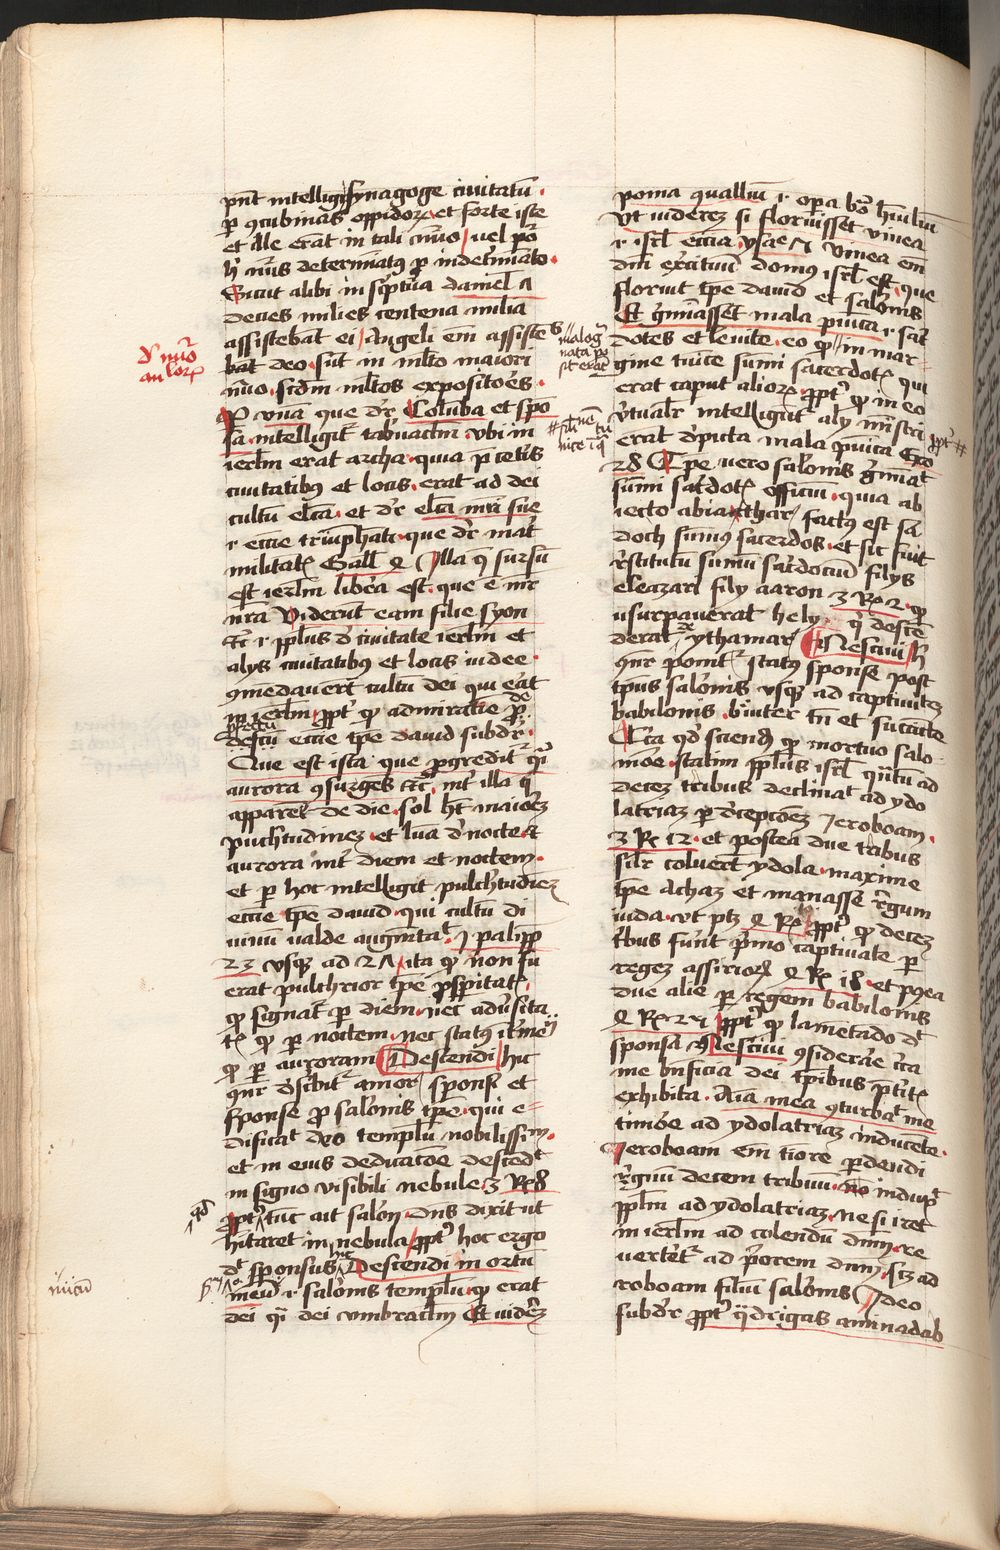 pn̄t intelligi synagoge ciuitatū ·
p ɔcubinas oppidoꝝ · et forte iste
et ille erat in tali nūo / uel pōt
hic nūus determīatꝰ ꝓ indet'miato ·
Sicut alibi in scptura daniel 7
decies milies centena milia
assistebāt ei / Angeli em̄ assiste
bāt deo · sūt in mlto maiori
nūo · scdm mltos expositōes ·
Per vnā que dr̄ Columba et spō
sa · intelligit̄ tab'nacl̄m · vbi in
ierlm erat archa · quia p cet'is
ciuitatibꝰ et locis · erat ad dei
cultū elc̄a · et dr̄ elc̄a mr̄i sue
i · eccie triūphati · que dr̄ mat'
militatis Gall 4 Illa q̄ sursū
est ierlm libera est · que ē mr̄
nr̄a Viderunt eam filie syon
etc̄ i · ppl̄us d' ciuitate ierlm et
alijs ciuitatibꝰ et locis iudee ·
ɔmēdauerūt cultū dei qui erat
in ierlm / ppt' qđ admiratiōe de
eccie tpe dauid subdr̄ ·
Que est ista que ꝓgredit̄ qī
aurora ɔsurgēs etc̄ · int' illa q̄
apparent de die · sol ht̄ maiorem
pulchritudinez · et lūa d' nocte · et
aurora int' diem et noctem ·
et per hoc intelligit pulch'tudinez
eccie tpe dauid · qui cultū di
uinū ualde augm̄tat · j palipp
23 vsqꝫ ad 27 ita qđ non fu
erat pulchrior tpe ꝓspitatis
qđ signat̄ p diem · nec adūsita
tis qđ per noctem · nec statꝰ it'mediꝰ
qđ per auroram Descendi hic
ɔnr̄ dscribit̄ amor sponsi et
sponse ꝓ salōnis tpe · qui e=
dificat deo templū nobilissim̄ ·
et in eius dedicatōe descēdt
in signo visibili nebule · 3 Rꝫ 8
ppt' tūc ait salōn · Dn̄s dixit ut
hitaret in nebula / ppt' hoc ergo
dt̄ sponsus Descendi in ortū
meū i · salōnis templū · qđ erat
dei qī dei vmbraclm Et videreꝫ
d' nūo
anḡloꝝ
poma quallium i · opa bo hūiliū
Vt uiderez si floruisset vinea
i · isrl eccia · ysaie 5 vinea em̄
dm̄ exercituū domus isrl est · que
floruit tpe dauid et salōnis
Et ḡm̄assent mala punica i · sac'
dotes et leuite · eo qđ in mar=
gine tunice sum̄i sacerdotis qui
erat caput alioꝝ · ppt' qđ in eo
v'tualr̄ intelligūt̄ alij mīstri
erāt d'picta mala punica Exo
28 Tpe uero salōnis ḡm̄iat
sum̄i sac'dotis officiū · quia ab
iecto abiathar / factꝰ est sa
doch sum̄us sacerdos · et sic fuit
r̄stitutū sum̄ū sac'dociū filijs
eleazari filij aaron 3 Rꝫ 2 · qđ
usurpauerat hely · q̄ desce
derat de ythamar Nesciui / hic
ɔnr̄ ponit̄ statꝰ sponse post
tpus salōnis vsqꝫ ad captiuitez
babilonis · bruiter tn̄ et succīcte
Circa qđ sciendū qđ mortuo salo=
mōe · statim ppl̄us isrl qn̄tū ad
decez tribus declinat ad ydo
latriaz p d'cepciōez Jeroboam ·
3 Rꝫ 12 · et postea due tribus
silr̄ coluerūt ydola · maxime
tpe achaz et manasse regum
iuda · vt ptꝫ 4 Rꝫ ppt' qđ decez
tbus fuerūt p'mo captiuate per
regez assirioꝝ 4 Rꝫ 18 · et postea
due alie per regem babilonis
4 Rꝫ 25 ppt' qđ lamētado dt̄
sponsa Nesciui ɔsiderare circa
me bn̄ficia dei tpibus p't'itis
exhibita · Aīa mea ɔturbat me
timōe ad ydolatriaz inducēte ·
Jeroboam em̄ tiore perdendi
r̄gnū decem tribuum · indux̄
pplm ad ydolatriaz · ne si iret
in ierlm ad colendū dn̄m · re
uertet̄ ad p'orem dn̄m · scꝫ ad
roboam filiū salōnis Ideo
subdr̄ ppt' qdrigas aminadab
malog̅
nata po
sit erāt